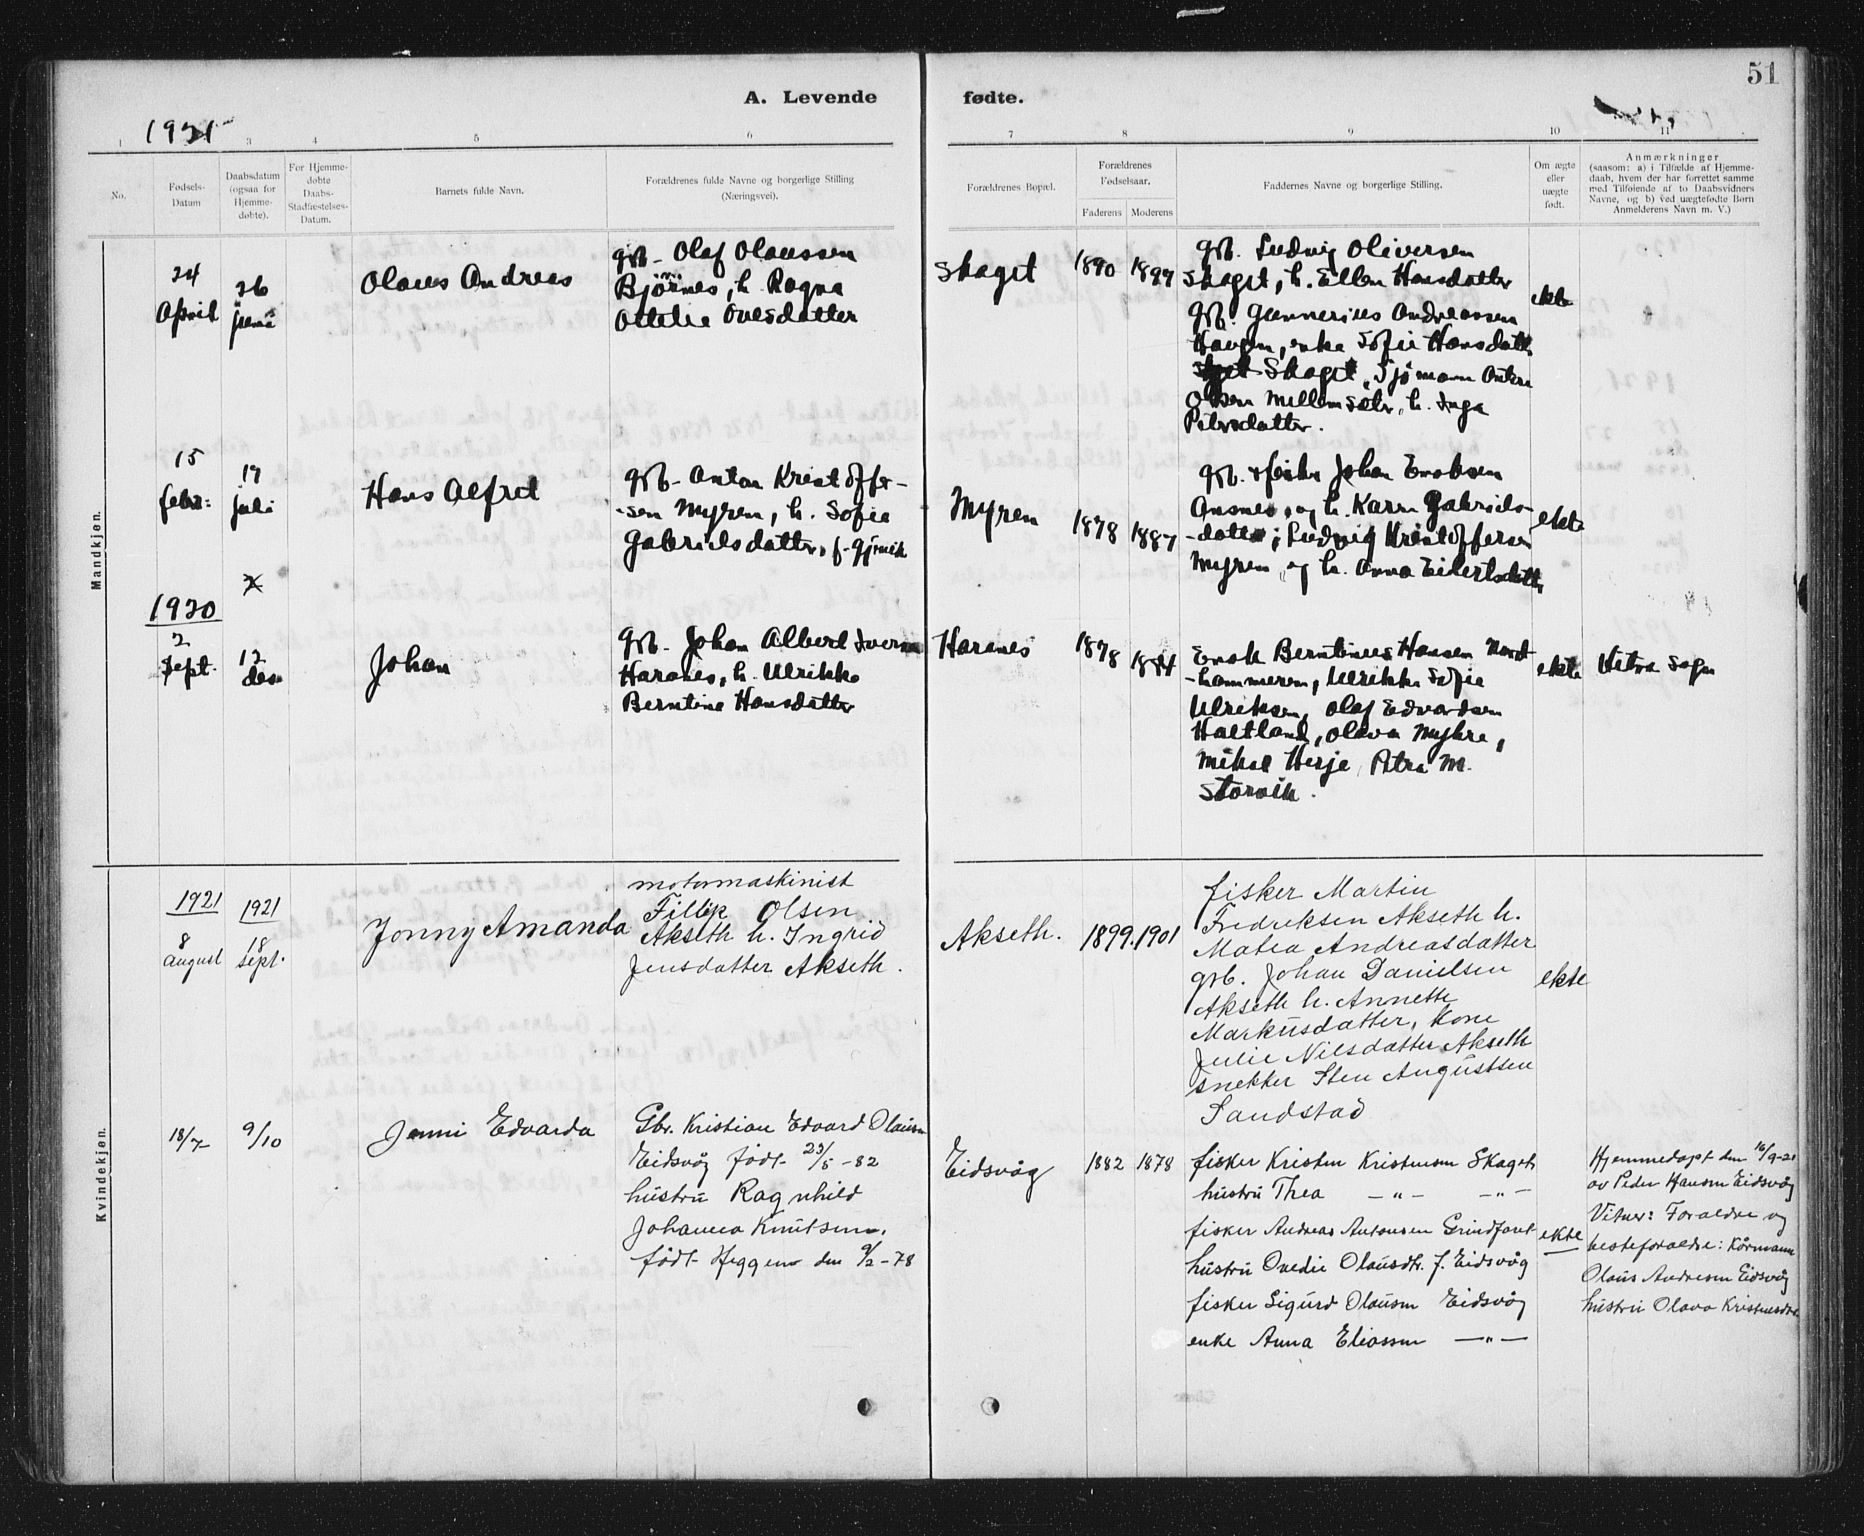 51
A. Levende fødte.
1921
1 3 4 5 6 7 8 9 10 11
No.
Fødsels-
Datum
Daabsdatum
(ogsaa for
Hjemme-
døbte).
For Hjemme-
døbte
Daabs-
Stadfæstelses-
Datum.
Barnets fulde Navn.
Forældrenes fulde Navne og borgerlige Stilling
(Næringsvei).
Forældrenes Bopæl.
Forældrenes
Fødselsaar.
Faderens
Moderens
Faddernes Navne og borgerlige Stilling.
Om ægte
eller
uægte
født.
Anmærkninger
(saasom: a) i Tilfælde af Hjemme-
daab, hvem der har forrettet samme
med Tilføiende af to Daabsvidners
Navne, og b) ved uægtefødte Børn
Anmelderens Navn m. V.)
Mandkjøn.
24
April
26
juni
Olaus Andreas
gbr. Olaf Olaussen
Bjørnes, h. Ragna
Ottelie Ovesdatter
Skaget
1890
1897
gbr. Ludvig Oliversen
Skaget, h. Ellen Hansdatter
gbr. Gunnerius Andreassen
Haugen, enke Sofie Hansdatt
Skaget, Sjømann Anton
Olsen Mellemsætr, h. Inga
Petersdatter.
ekte
15
febr:
17
juli
Hans Alfred
gbr. Anton Kristoffer-
-sen Myren, h. Sofie
Gabrielsdatter, f. Gjøvik
Myren
1878
1887
gbr. & fisker Johan Enoksen
Ansnes, og h. Karen Gabriels-
-datter; Ludvig Kristoffersen
Myren, og h. Anna Eilertsdatter
ekte
1920
2
Sept.
12
des
Johan
gbr. Johan Albert Iversen
Haranes, h. Ulrikke
Berntine Hansdatter
Haranes
1878
1884
Enok Berntinus Hansen Nord-
-hammeren, Ulrikke Sofie
Ulriksen, Olaf Edvardsen
Haltland, Olava Myhre,
Mikal Herje, Petra M.
Storvik.
ekte
Hitra Sogn
Kvindekjøn.
1921
8
august
1921
18
Sept.
Jonny Amanda
motormaskinist
Fillip Olsen
Akseth h. Ingrid
Jensdatter Akseth.
Akseth.
1899.
1901
fisker Martin
Fredriksen Akseth h.
Matea Andreasdatter
gbr. Johan Danielsen
Akseth h. Annette
Markusdatter, Kone
Julie Nilsdatter Akseth
snekker Sten Augustsen
Sandstad
ekte
18/7
9/10
Jenni Edvarda
Gbr. Kristian Edvard Olausen
Eidsvåg født 23/5 -82
hustru Ragnhild
Johanna Knutsen.
født Heggen den 9/2 -78
Eidsvåg
1882
1878
fisker Kristen Kristensen Skaget
hustru Thea — " — — " —
fisker Andreas Antonsen Grindfaret
hustru Ovedie Olausdtr. f. Eidsvåg
fisker Sigurd Olausen Eidsvåg
enke Anna Eliassen — " —
ekte
Hjemmedøpt den 16/9-21
av Peder Hansen Eidsvåg
Vitner: Foraldre og
besteforaldre: Kårmann
Olaus Andresen Eidsvåg
hustru Olava Kristensdtr.